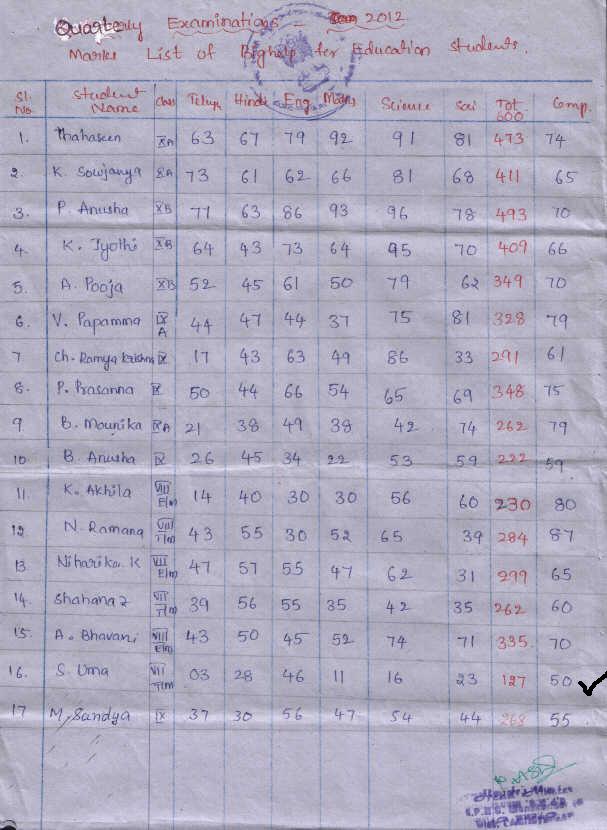 Quarterly Examinations - 2012
Marks List of Bighelp for Education Students.
Sl. No. Student Name Class Telugu Hindi Eng Maths Science Soci Tot 600 Comp.
1. Thahaseen XA 63 67 79 92 91 81 473 74
2. K. Sowjanya XA 73 61 62 66 81 68 411 65
3. P. Anusha XB 77 63 86 93 96 78 493 70
4. K. Jyothi XB 64 43 73 64 95 70 409 66
5. A. Pooja XB 52 45 61 50 79 62 349 70
6. V. Papamma IX A 44 47 44 37 75 81 328 79
7 Ch. Ramya Krishna IX 17 43 63 49 86 33 291 61
8. P. Prasanna IX 50 44 66 54 65 69 348 75
9 B. Mounika IXA 21 38 49 38 42 74 262 79
10 B. Anusha IX 26 45 34 22 53 59 222 59
11. K. Akhila VIII E/m 14 40 30 30 56 60 230 80
12 N. Ramana VIII T/m 43 55 30 52 65 39 284 87
13 Niharika. K VII E/m 47 57 55 47 62 31 299 65
14. Shahana z VII T/m 39 56 55 35 42 35 262 60
15. A. Bhavani VIII E/m 43 50 45 52 74 71 335 70
16. S. Uma VII T/m 03 28 46 11 16 23 127 50 ✓
17 M. Sandya IX 37 30 56 47 54 44 268 55